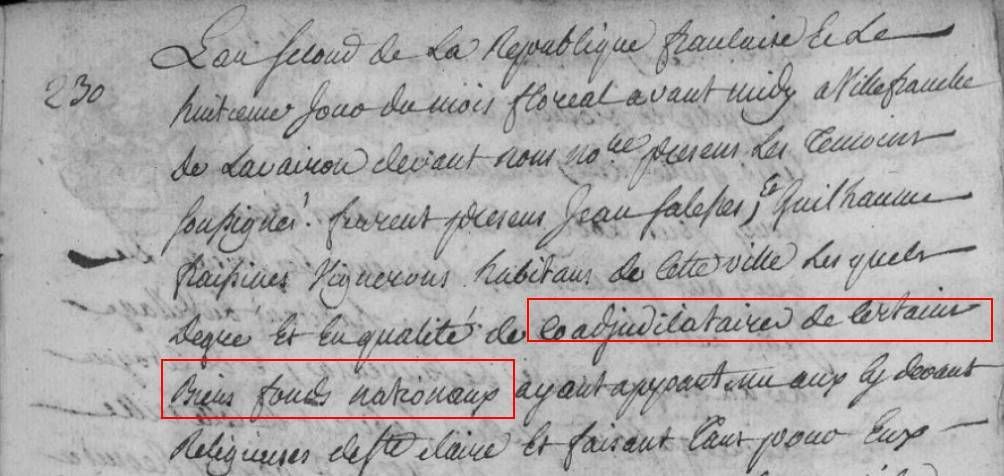 L'an second de La Republique francaise Et Le
230
huitieme Jour du mois floreal avant midy a Villefranche
de Lavairon devant nous no.re presens Les Temoins
soussignés furent presens Jean falesses, Et Guilhaume
Raspines Vignerons habitans de Cette ville Lesquels
degré Et En qualité de Coadjudicataires de Certains
Biens fonds nationaux ayant appartenu aux Cy devant
Religieuses de Ste Claire Et faisant Tant pour Eux